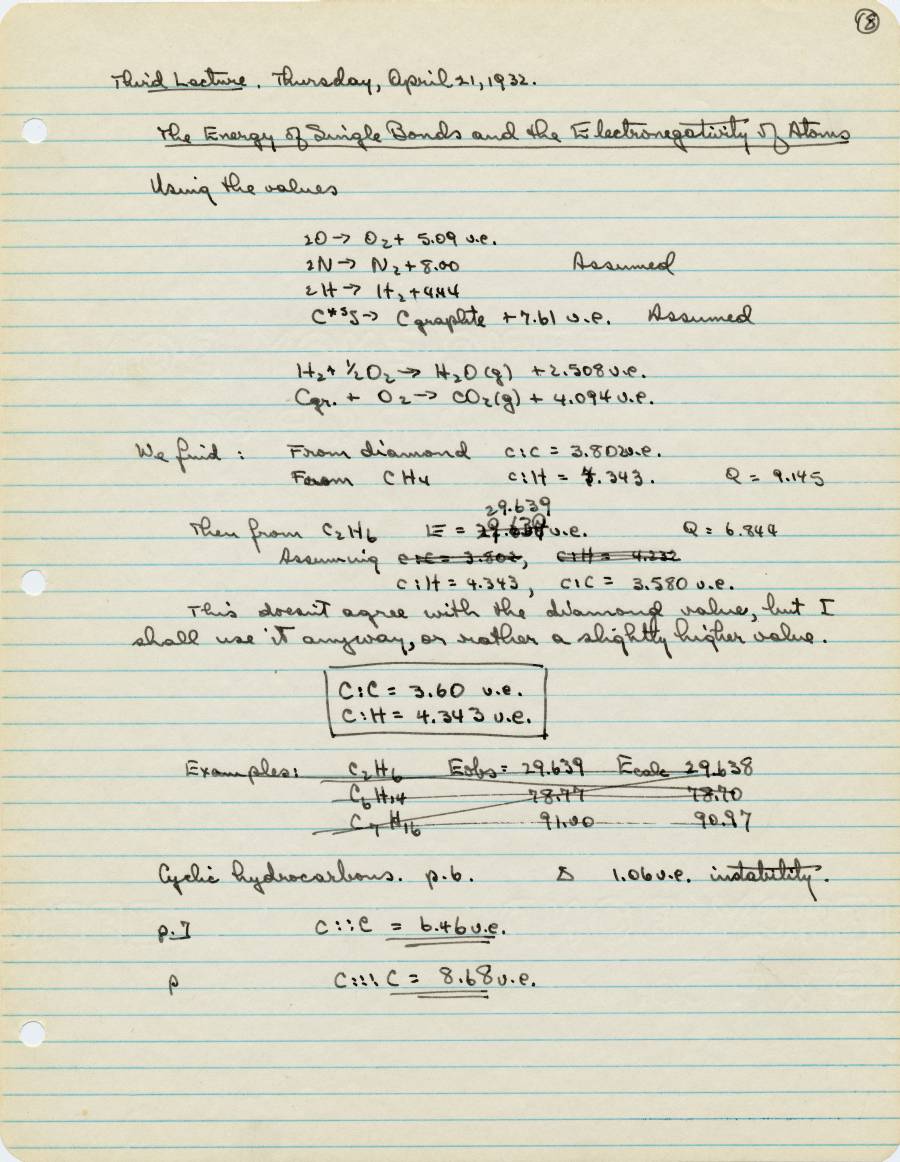 18
Third Lecture. Thursday, April 21, 1932.
The Energy of Single Bonds and the Electronegativity of Atoms
Using the values
2O → O₂ + 5.09 v.e.
2N → N₂ + 8.00 Assumed
2H → H₂ + 4.44
C*⁵S → C graphite + 7.61 v.e. Assumed
H₂ + ½O₂ → H₂O (g) + 2.508 v.e.
Cgr. + O₂ → CO₂(g) + 4.094 v.e.
We find: From diamond C:C = 3.802 v.e.
From CH₄ C:H = 4.343. Q = 9.145
29.639
Then from C₂H₆ E = 29.639 v.e. Q = 6.844
Assuming C:C = 3.802, C:H = 4.232
C:H = 4.343, C:C = 3.580 v.e.
This doesn't agree with the diamond value, but I
shall use it anyway, or rather a slightly higher value.
C:C = 3.60 v.e.
C:H = 4.343 v.e.
Examples: C₂H₆ Eobs = 29.639 Ecalc 29.638
C₆H₁₄ 78.77 78.70
C₇H₁₆ 91.00 90.97
Cyclic hydrocarbons. p.6. 1.06 v.e. instability.
p.7 C::C = 6.46 v.e.
p C:::C = 8.68 v.e.